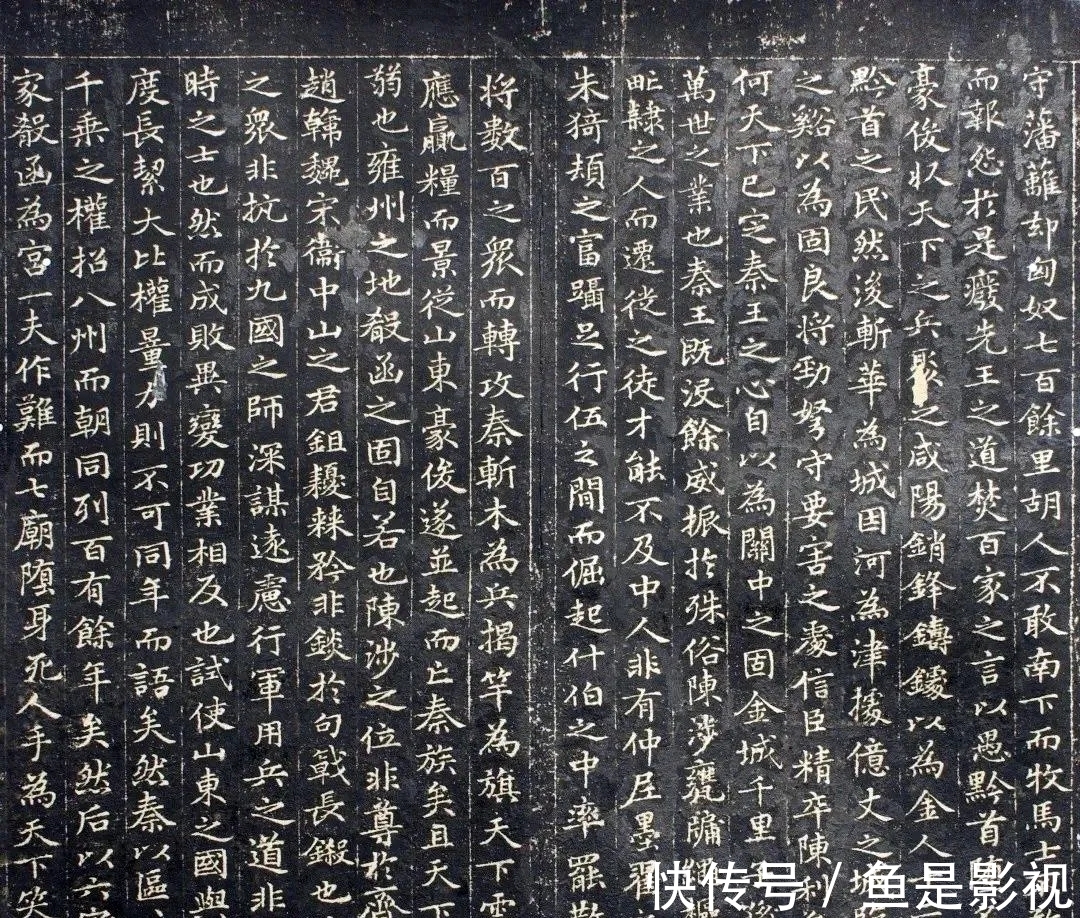 守藩蘺却匈奴七百餘里胡人不敢南下而牧馬士
而報怨於是癈先王之道焚百家之言以愚黔首
豪俊收天下之兵聚之咸陽銷鋒鑄鐻以為金人
黔首之民然後斬華為城因河為津據億丈之城
之谿以為固良將勁弩守要害之處信臣精卒陳利
何天下已定秦王之心自以為關中之固金城千里子孫
萬世之業也秦王既沒餘威振於殊俗陳涉甕牖繩
甿隸之人而遷徙之徒才能不及中人非有仲尼墨翟
朱猗頓之富躡足行伍之間而倔起什伯之中率罷散
將数百之眾而轉攻秦斬木為兵揭竿為旗天下雲
應贏糧而景從山東豪俊遂並起而亡秦族矣且天下
弱也雍州之地殽函之固自若也陳涉之位非尊於齊
趙韓魏宋衞中山之君鉏耰棘矜非錟於句戟長鎩也
之眾非抗於九國之師深謀遠慮行軍用兵之道非
時之士也然而成敗異變功業相反也試使山東之國與
度長絜大比權量力則不可同年而語矣然秦以區
千乘之權招八州而朝同列百有餘年矣然后以六
家殽函為宮一夫作難而七廟堕身死人手為天下笑
快传号/鱼是影视